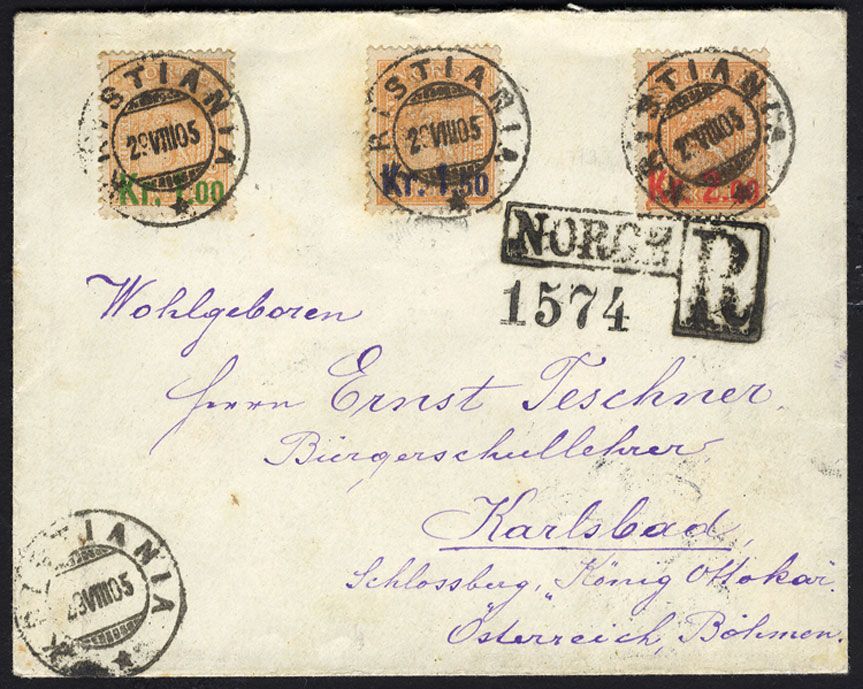 KRISTIANIA
29VIII05
Kr. 1.00
KRISTIANIA
29VIII05
Kr. 1.50
KRISTIANIA
29VIII05
Kr. 2.00
NORGE R
1574
Wohlgeboren
Herrn Ernst Teschner,
Bürgerschullehrer,
Karlsbad,
Schlossberg, „König Ottokar.
Österreich, Böhmen.
KRISTIANIA
29VIII05